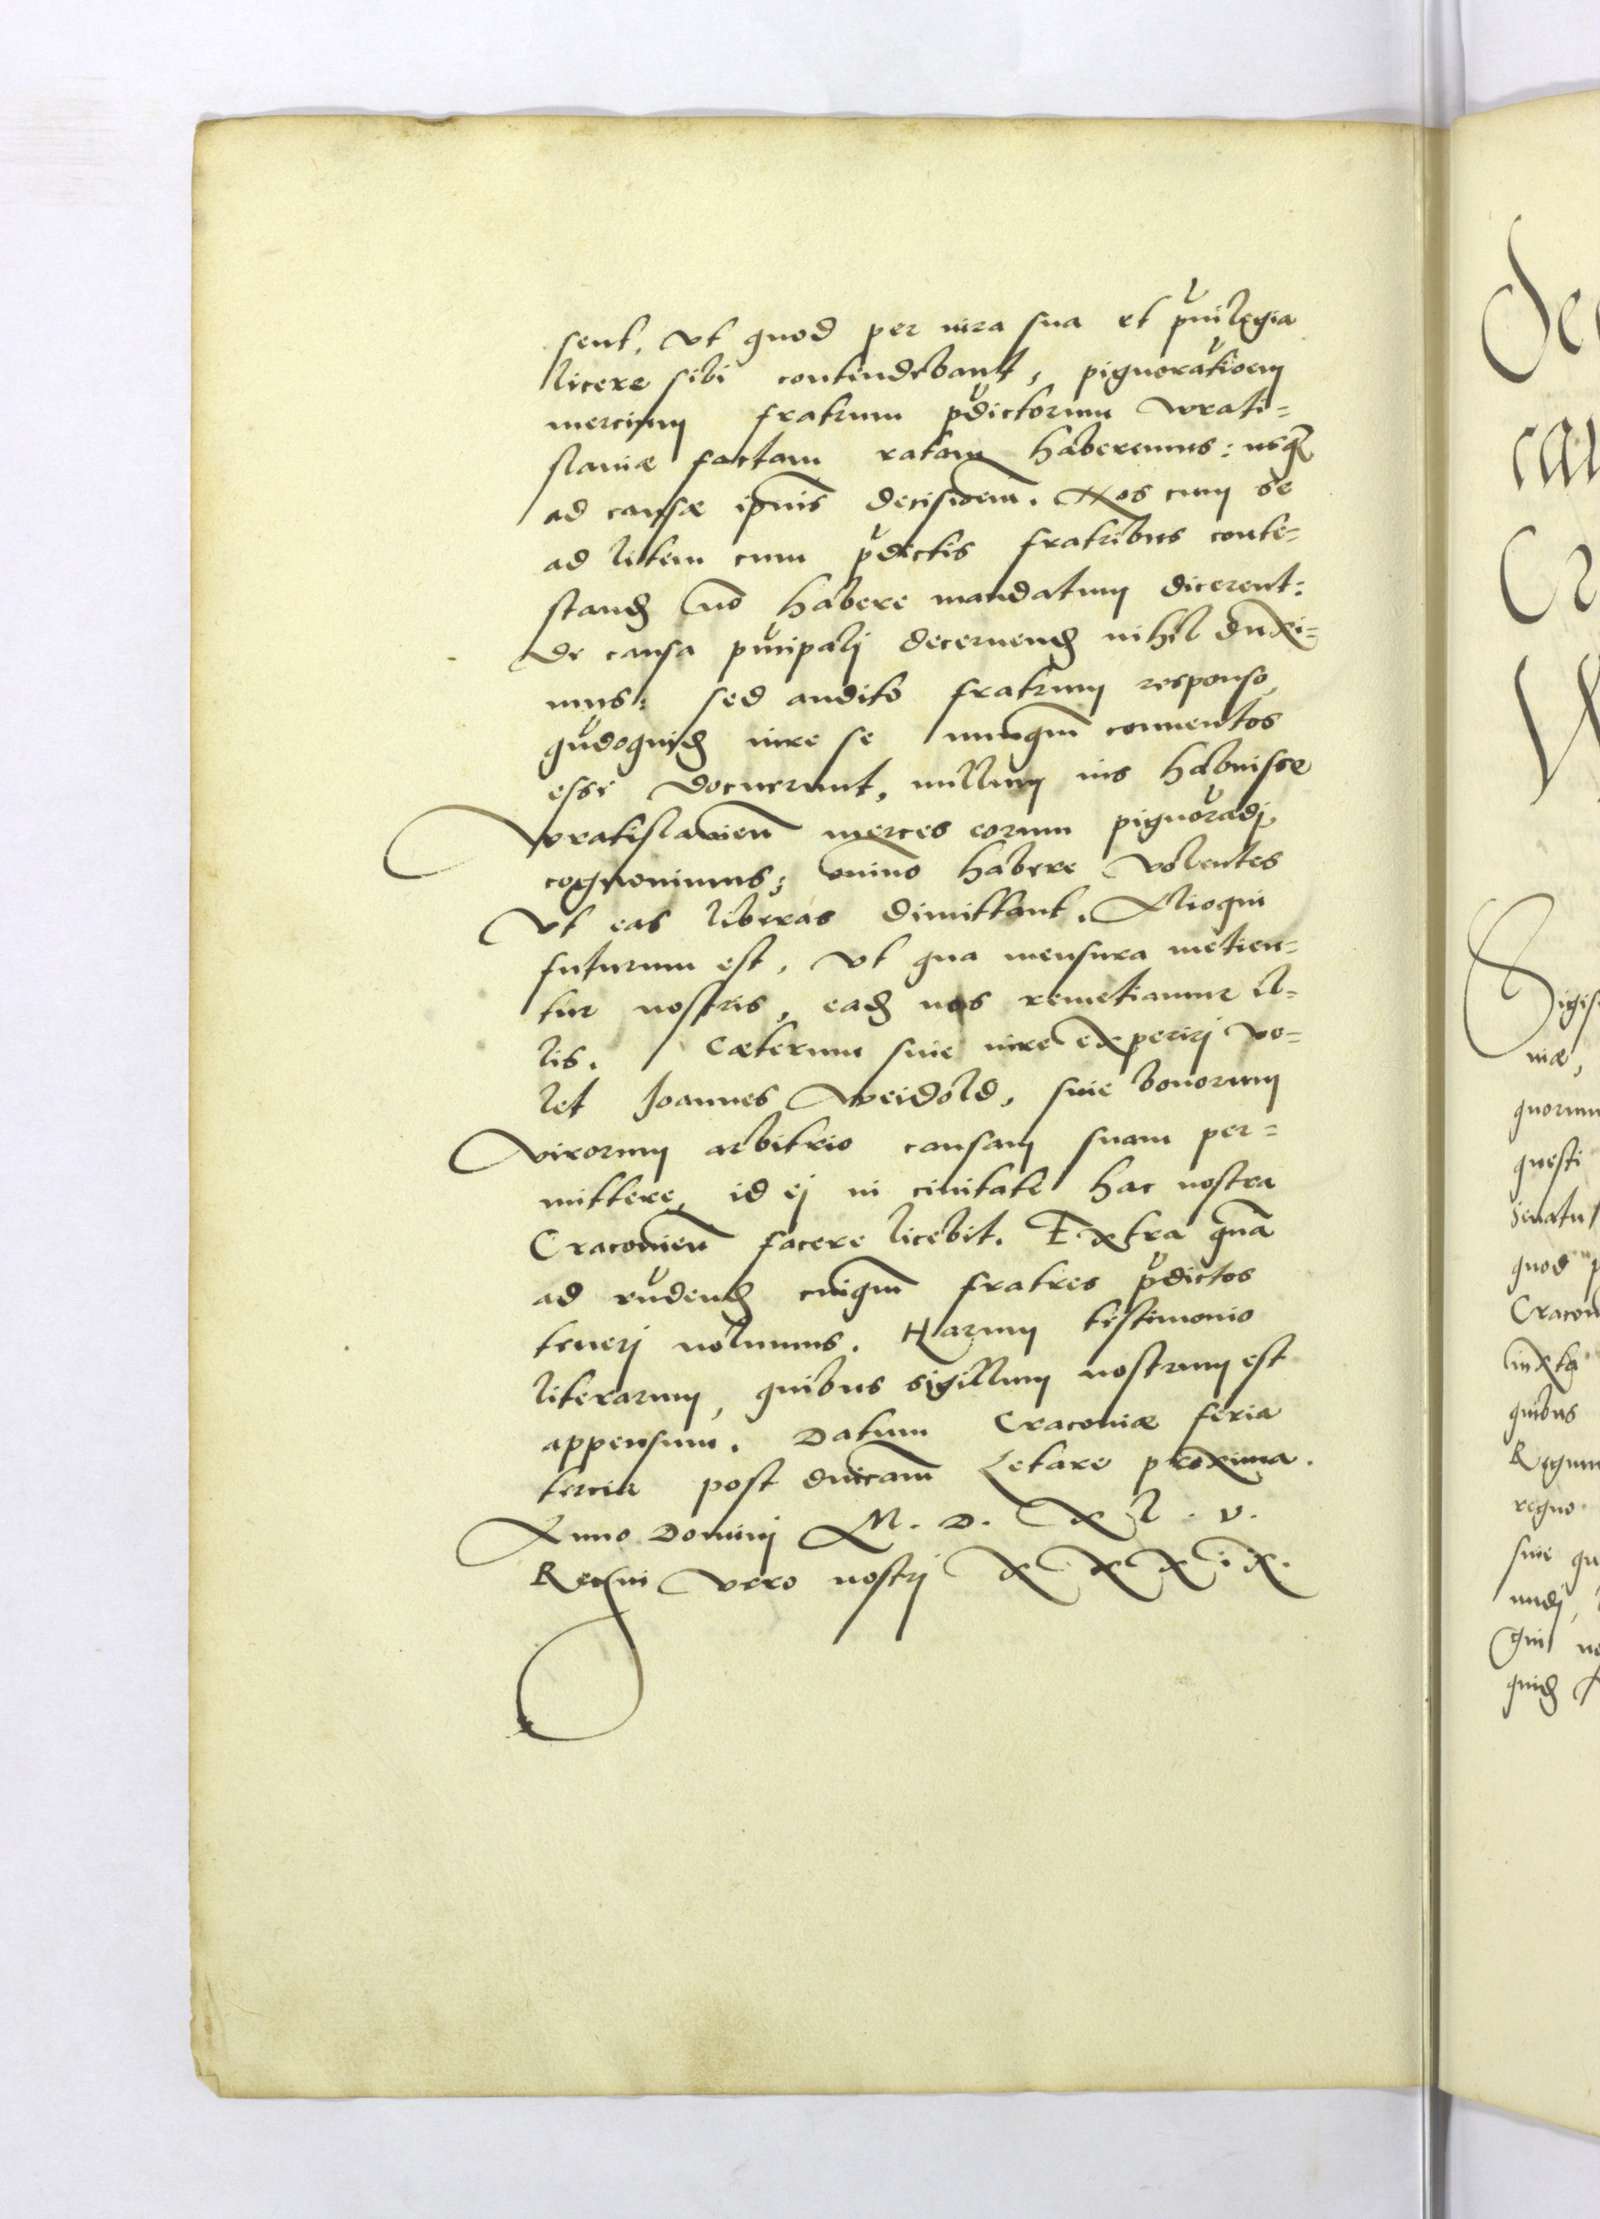 sent, ut quod per iura sua et pͮuilegia
licere sibi contendebant, pignoratͮioem
mercium fratrum pͮdictorum Wrati=
slauiæ factam ratam haberemus: usq̃
ad causæ ip̃ius decisioem̃. Nos cum se
ad litem cum pͮdictis fratribus conte=
stanđ nõ habere mandatum dicerent:
de causa pͮncipalj decernenđ nihil duxi=
mus: sed audito fratrum responso,
quͮdoquiđ iure se nunqm̃ conuentos
esse docuerunt, nullum ius habuisse
Vratislauieñ merces eorum pignorͮadj
cognouimus; om̃ino habere volentes
Vt eas liberas dimittant. Alioqui
futurum est, Vt qua mensura metien=
tur nostris, eađ nos remetiamur il=
lis. Cæterum siue iure experirj vo=
let Joannes Weidold, siue bonorum
Virorum arbitrio causam suam per=
mittere, id ej in ciuitate hac nostra
Cracouieñ facere licebit. Extra quã
ad rͮndenđ cuiqm̃ fratres pͮdictos
tenerj nolumus. Harum testimonio
literarum, quibus sigillum nostrum est
appensum. Datum Cracouiæ feria
tercia post dñicam Letare proxima.
Anno Dominj M. D. X L. V.
Regni vero nostrj X X X i X.
Sigis
niæ,
quorum
questi
senatu
quod
Cracou
iuxta
quibus
Regnum
regno
siue qu
undj,
Qui
quiđ